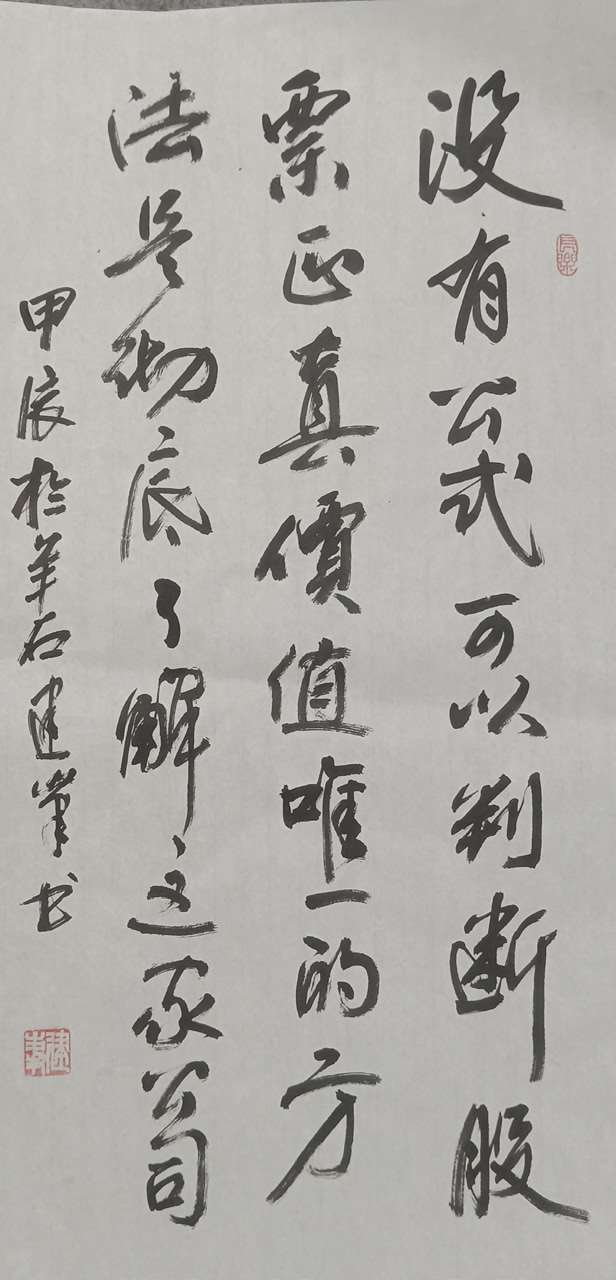 没有公式可以判断股
票正真價值唯一的方
法是彻底了解这家公司
甲辰於羊石建軍书